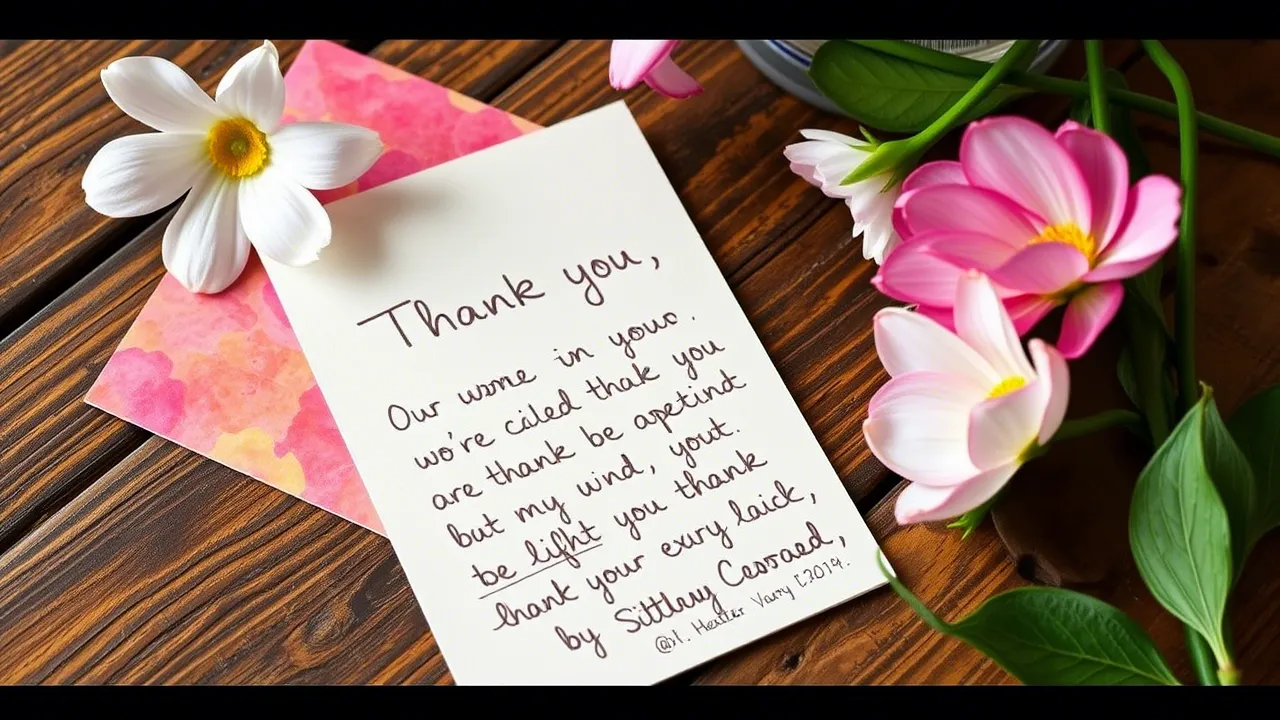 Thank you,
Our wsme in youo.
wo're cailed thak you
are thank be apetindt
but my wind, yout.
be lifht you thank
hank your exury laick,
by Sittlwy Cesoraed,
Heatler Vawy